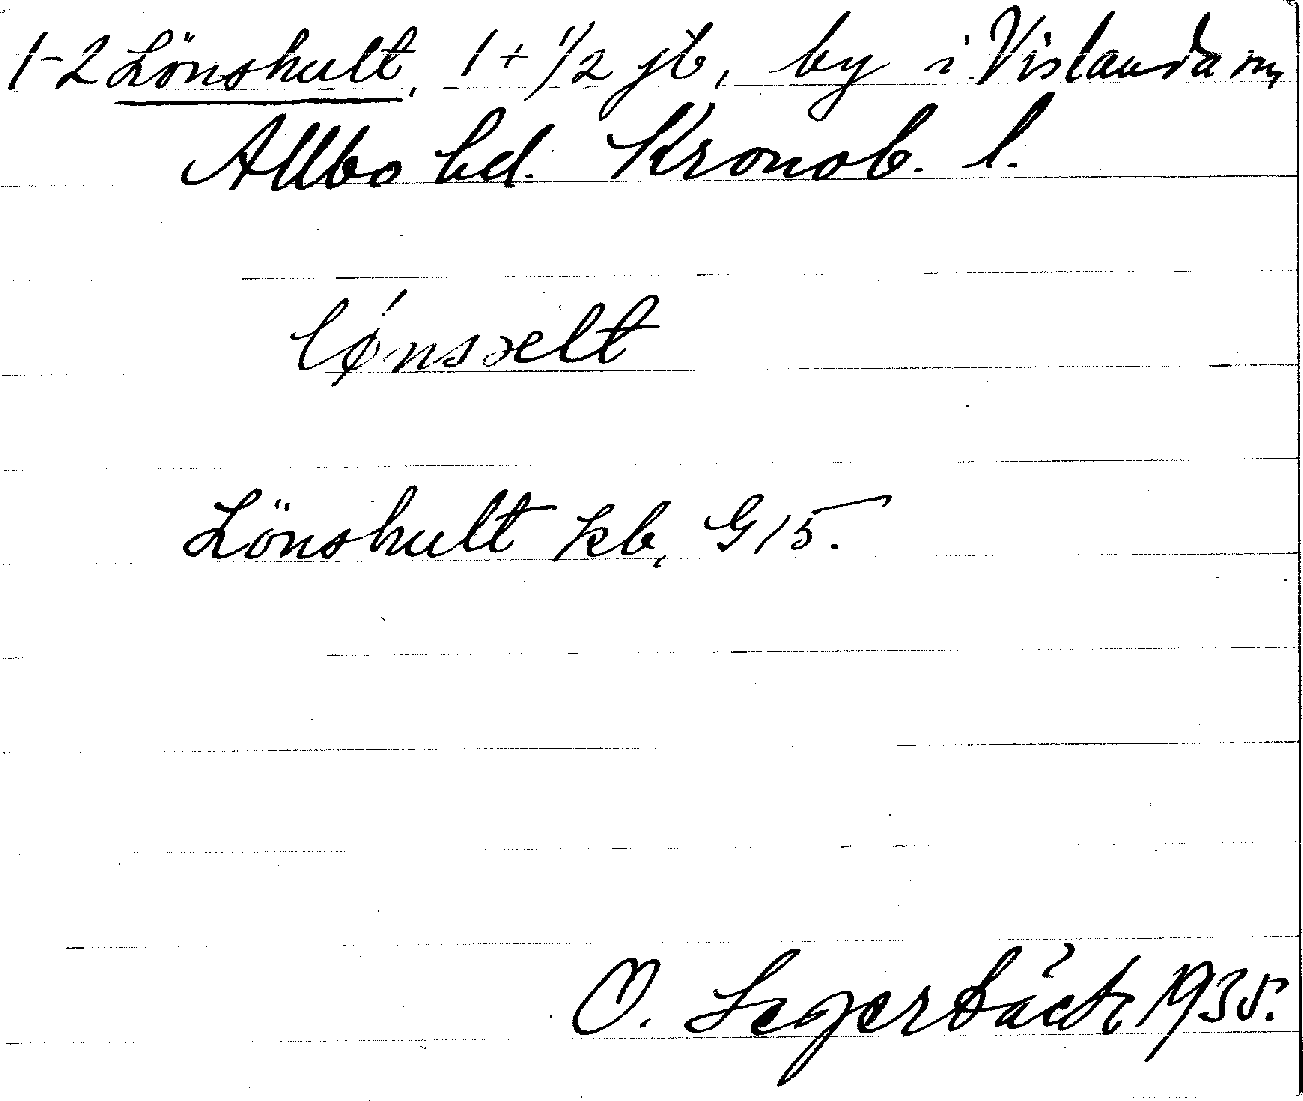 1-2 Lönshult, 1 + 1/2 jb, by i Vislanda sn,
Allbo hd. Kronob. l.
lǿnsælt
Lönshult kb, G 15.
O. Segerbäck 1935.